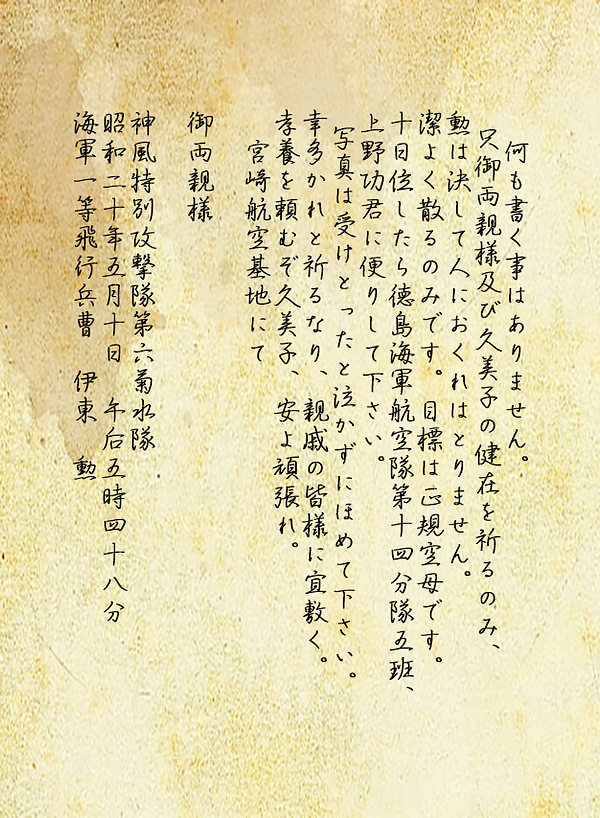 何も書く事はありません。
只御両親様及び久美子の健在を祈るのみ、
勲は決して人におくれはとりません。
潔よく散るのみです。目標は正規空母です。
十日位したら徳島海軍航空隊第十四分隊五班、
上野功君に便りして下さい。
写真は受けとったと泣かずにほめて下さい。
幸多かれと祈るなり、親戚の皆様に宜敷く。
孝養を頼むぞ久美子、安よ頑張れ。
宮崎航空基地にて
御両親様
神風特別攻撃隊第六菊水隊
昭和二十年五月十日　午后五時四十八分
海軍一等飛行兵曹　伊東　勲